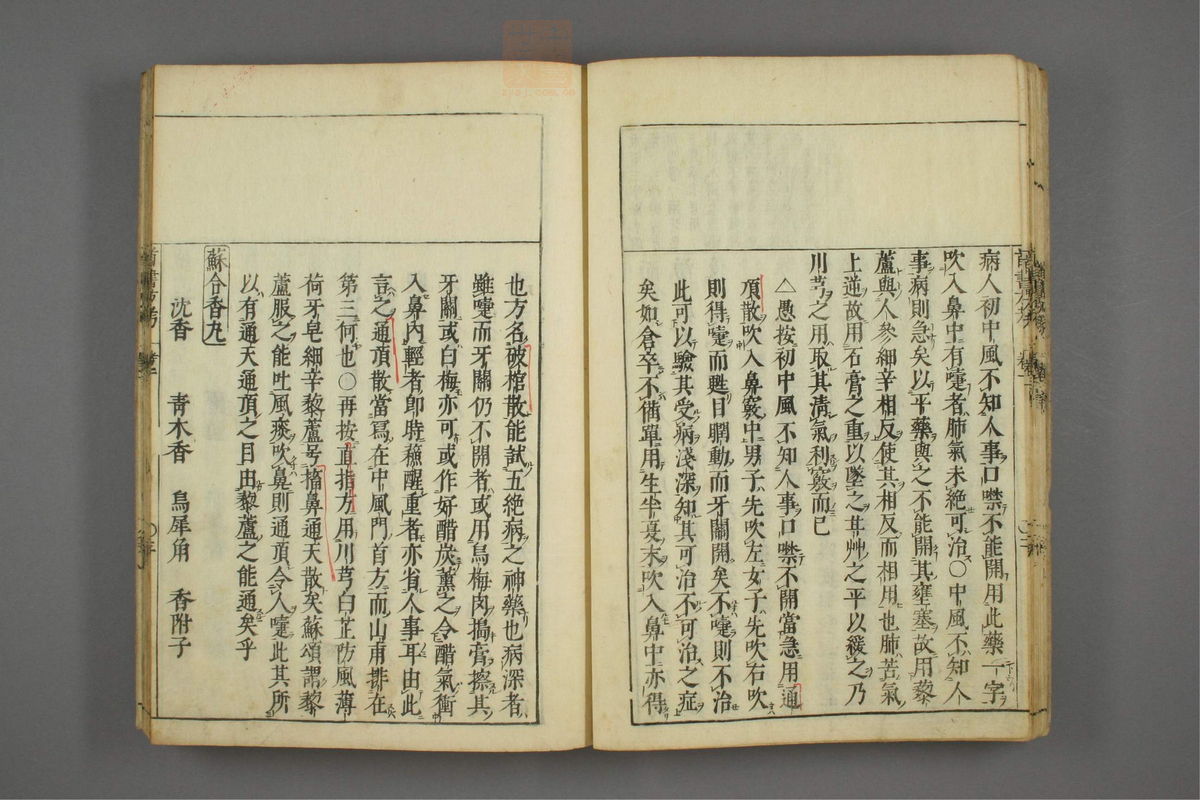 病人初中風不知人事口噤不能開用此藥一字
吹入鼻中有嚏者肺氣未絕可治○中風不知人
事病則急矣以平藥與之不能開其壅塞故用藜
蘆與人參細辛相反使其相反而相用也肺苦氣
上逆故用石膏之重以墜之甘艸之平以緩之乃
川芎之用取其清氣利竅而已
△愚按初中風不知人事口噤不開當急用通
頂散吹入鼻竅中男子先吹左女子先吹右吹
則得嚏而甦目瞤動而牙關開矣不嚏則不治
此可以驗其受病淺深知其可治不可治之症
矣如倉卒不俻單用生半夏末吹入鼻中亦得
也方名破棺散能試五絕病之神藥也病深者
雖嚏而牙關仍不開者或用烏梅肉搗膏擦其
牙關或白梅亦可或作好醋炭薰之令醋氣衝
入鼻內輕者卽時蘇醒重者亦省人事耳由此
言之通頂散當爲在中風門首方而山甫排在
第三何也○再按直指方用川芎白芷防風薄
荷牙皂細辛藜蘆号搐鼻通天散矣蘇頌謂藜
蘆服之能吐風痰吹鼻則通頂令人嚏此其所
以有通天通頂之目由藜蘆之能通矣乎
蘇合香丸
沈香 青木香 烏犀角 香附子